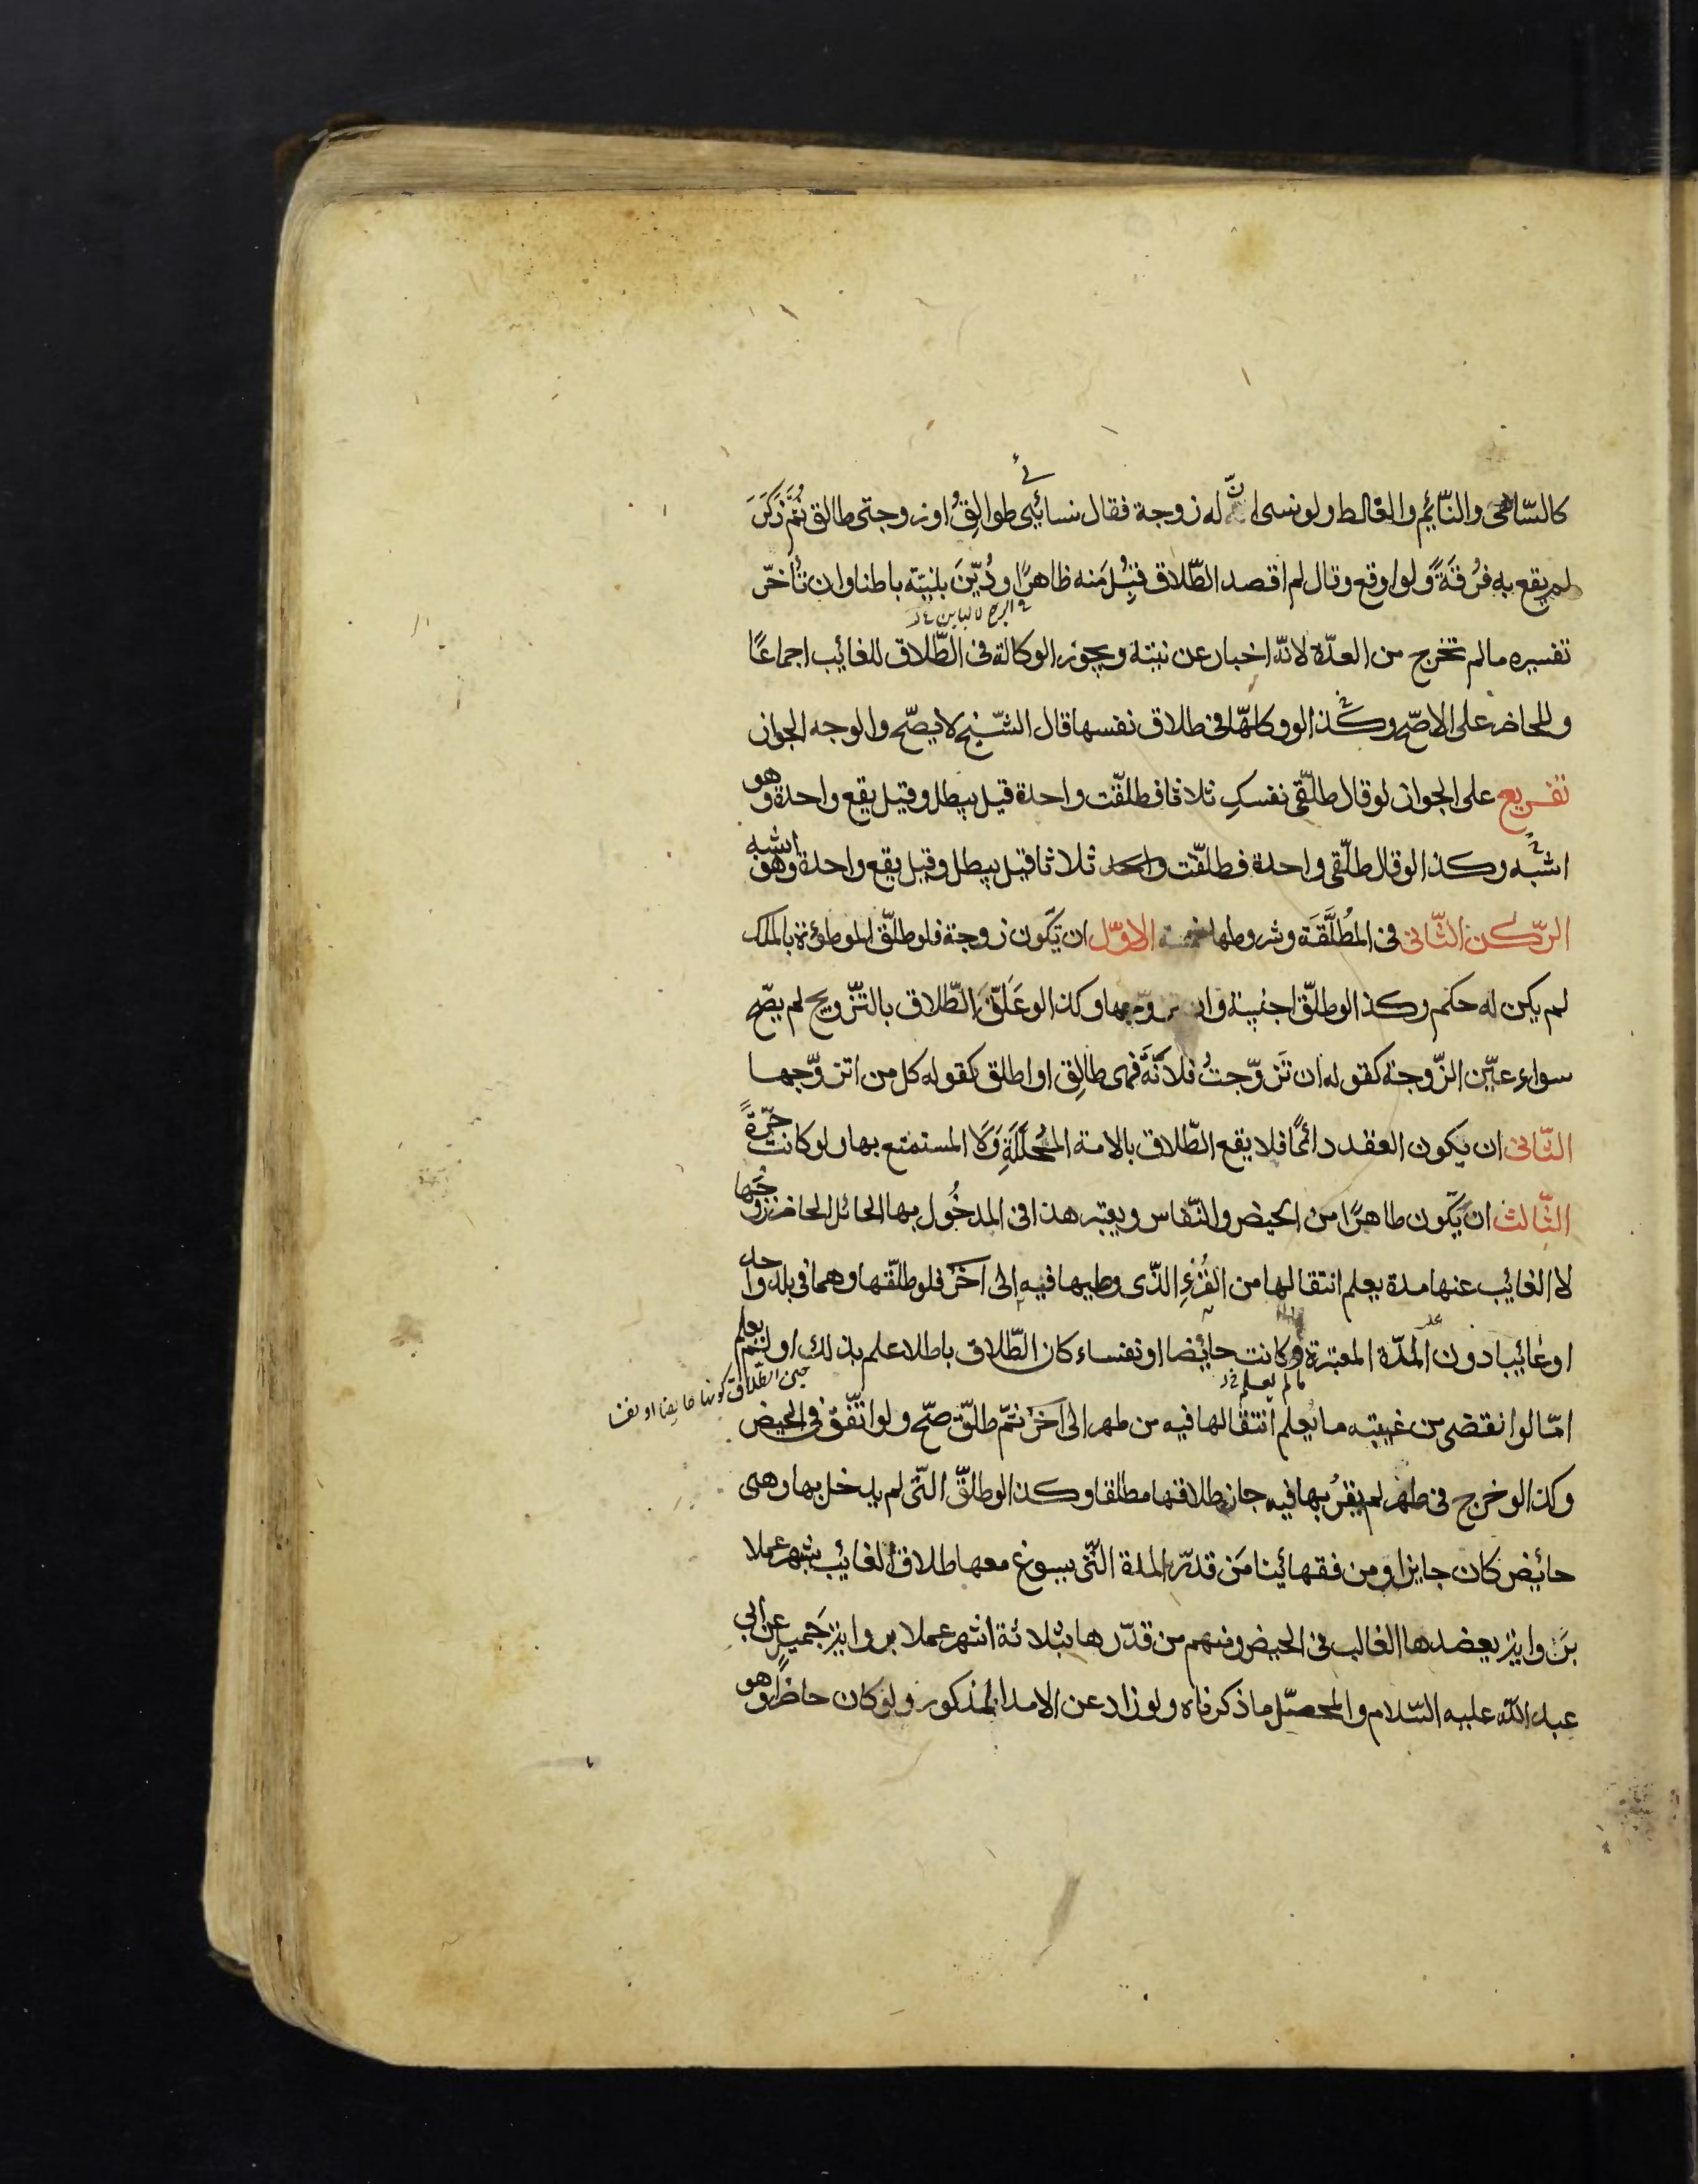 كالسّاهى والنّائم والغالط ولو نسى انّ له زوجة فقال نسائى طوالق او زوجتى طالق ثمّ ذكر
لم يقع به فُرقَةً ولو اوقع وقال لم اقصد الطّلاق قُبِلَ منه ظاهرًا ودُيّنَ بنيّته باطنا وان تأخّر
تفسيره مالم تخرج من العدّة لانّه اخبار عن نيّته ويجوز الوكالة فى الطّلاق للغائب اجماعًا
وللحاضر على الاصحّ وكذا لو وكّلها فى طلاق نفسها قال الشّيخ لا يصحّ والوجه الجواز
تفريع على الجواز لو قال طلّقى نفسكِ ثلاثا فطلّقت واحدة قيل يبطل وقيل يقع واحدة وهو
اشبه وكذا لو قال طلّقى واحدة فطلّقت ثلاثا قيل يبطل وقيل يقع واحدة وهو اشبه
الرّكن الثّانى فى المُطلَّقَة وشروطها خمسة الاوّل ان تكون زوجة فلو طلّق الموطوئة بالملك
لم يكن له حكم وكذا لو طلّق اجنبيّة وان تزوّجها وكذا لو عَلَّقَ الطّلاق بالتّزويج لم يصّح
سواء عيّن الزّوجة كقوله ان تَزوّجتُ فلانَةً فهى طالِق او اطلق كقوله كل من اتزوّجها
الثّانى ان يكون العقد دائمًا فلا يقع الطّلاق بالامة المُحلَّلَةِ وَلَا المستمتع بها ولو كانت حُرّةً
الثّالث ان تكون طاهرًا من الحيض والنّفاس ويعتبر هذا فى المدخُول بها الحائل الحاضر زوجُها
لا الغائب عنها مدة يعلم انتقالها من القُرْءِ الذّى وطيها فيه الى اخَرَ فلو طلّقها وهما فى بلد واحد
او غائبا دون المدّة المعتبرة وكانت حائضا او نفساء كان الطّلاق باطلا علم بذلك او لم يعلم
امّا لو انقضى من غيبته ما يُعلم انتقالها فيه من طهر الى اخَرَ ثمّ طلّق صحّ ولو اتّفق فى الحيض
مالم يعلم
حين الطّلاق كونها حايضا او نفسا
وكذا لو خرج فى طهر لم يقرُبها فيه جاز طلاقها مطلقا وكذا لو طلّق التّى لم يدخل بها وهى
حائض كان جايزا ومن فقهائنا مَن قدّر المدة التّى يسوغ معها طلاق الغائب بشهر عملا
بروايةٍ يعضدها الغالب فى الحيض ومنهم من قدّرها بثلاثة اشهر عملا بروايةِ جَميلٍ عن ابى
عبد الله عليه السّلام والمحصّل ما ذكرناه ولو زاد عن الامد المذكور ولو كان حاضرًا وهو